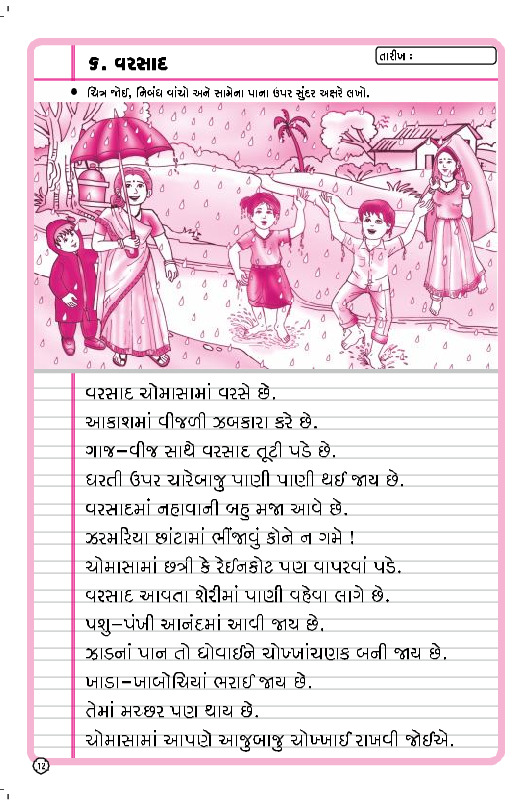 ૬. વરસાદ
તારીખ :
• ચિત્ર જોઈ, નિબંધ વાંચો અને સામેના પાના ઉપર સુંદર અક્ષરે લખો.
વરસાદ ચોમાસામાં વરસે છે.
આકાશમાં વીજળી ઝબકારા કરે છે.
ગાજ-વીજ સાથે વરસાદ તૂટી પડે છે.
ધરતી ઉપર ચારેબાજુ પાણી પાણી થઈ જાય છે.
વરસાદમાં નહાવાની બહુ મજા આવે છે.
ઝરમરિયા છાંટામાં ભીંજાવું કોને ન ગમે !
ચોમાસામાં છત્રી કે રેઈનકોટ પણ વાપરવાં પડે.
વરસાદ આવતા શેરીમાં પાણી વહેવા લાગે છે.
પશુ-પંખી આનંદમાં આવી જાય છે.
ઝાડનાં પાન તો ધોવાઈને ચોખ્ખાંચણક બની જાય છે.
ખાડા-ખાબોચિયાં ભરાઈ જાય છે.
તેમાં મચ્છર પણ થાય છે.
ચોમાસામાં આપણે આજુબાજુ ચોખ્ખાઈ રાખવી જોઈએ.
12